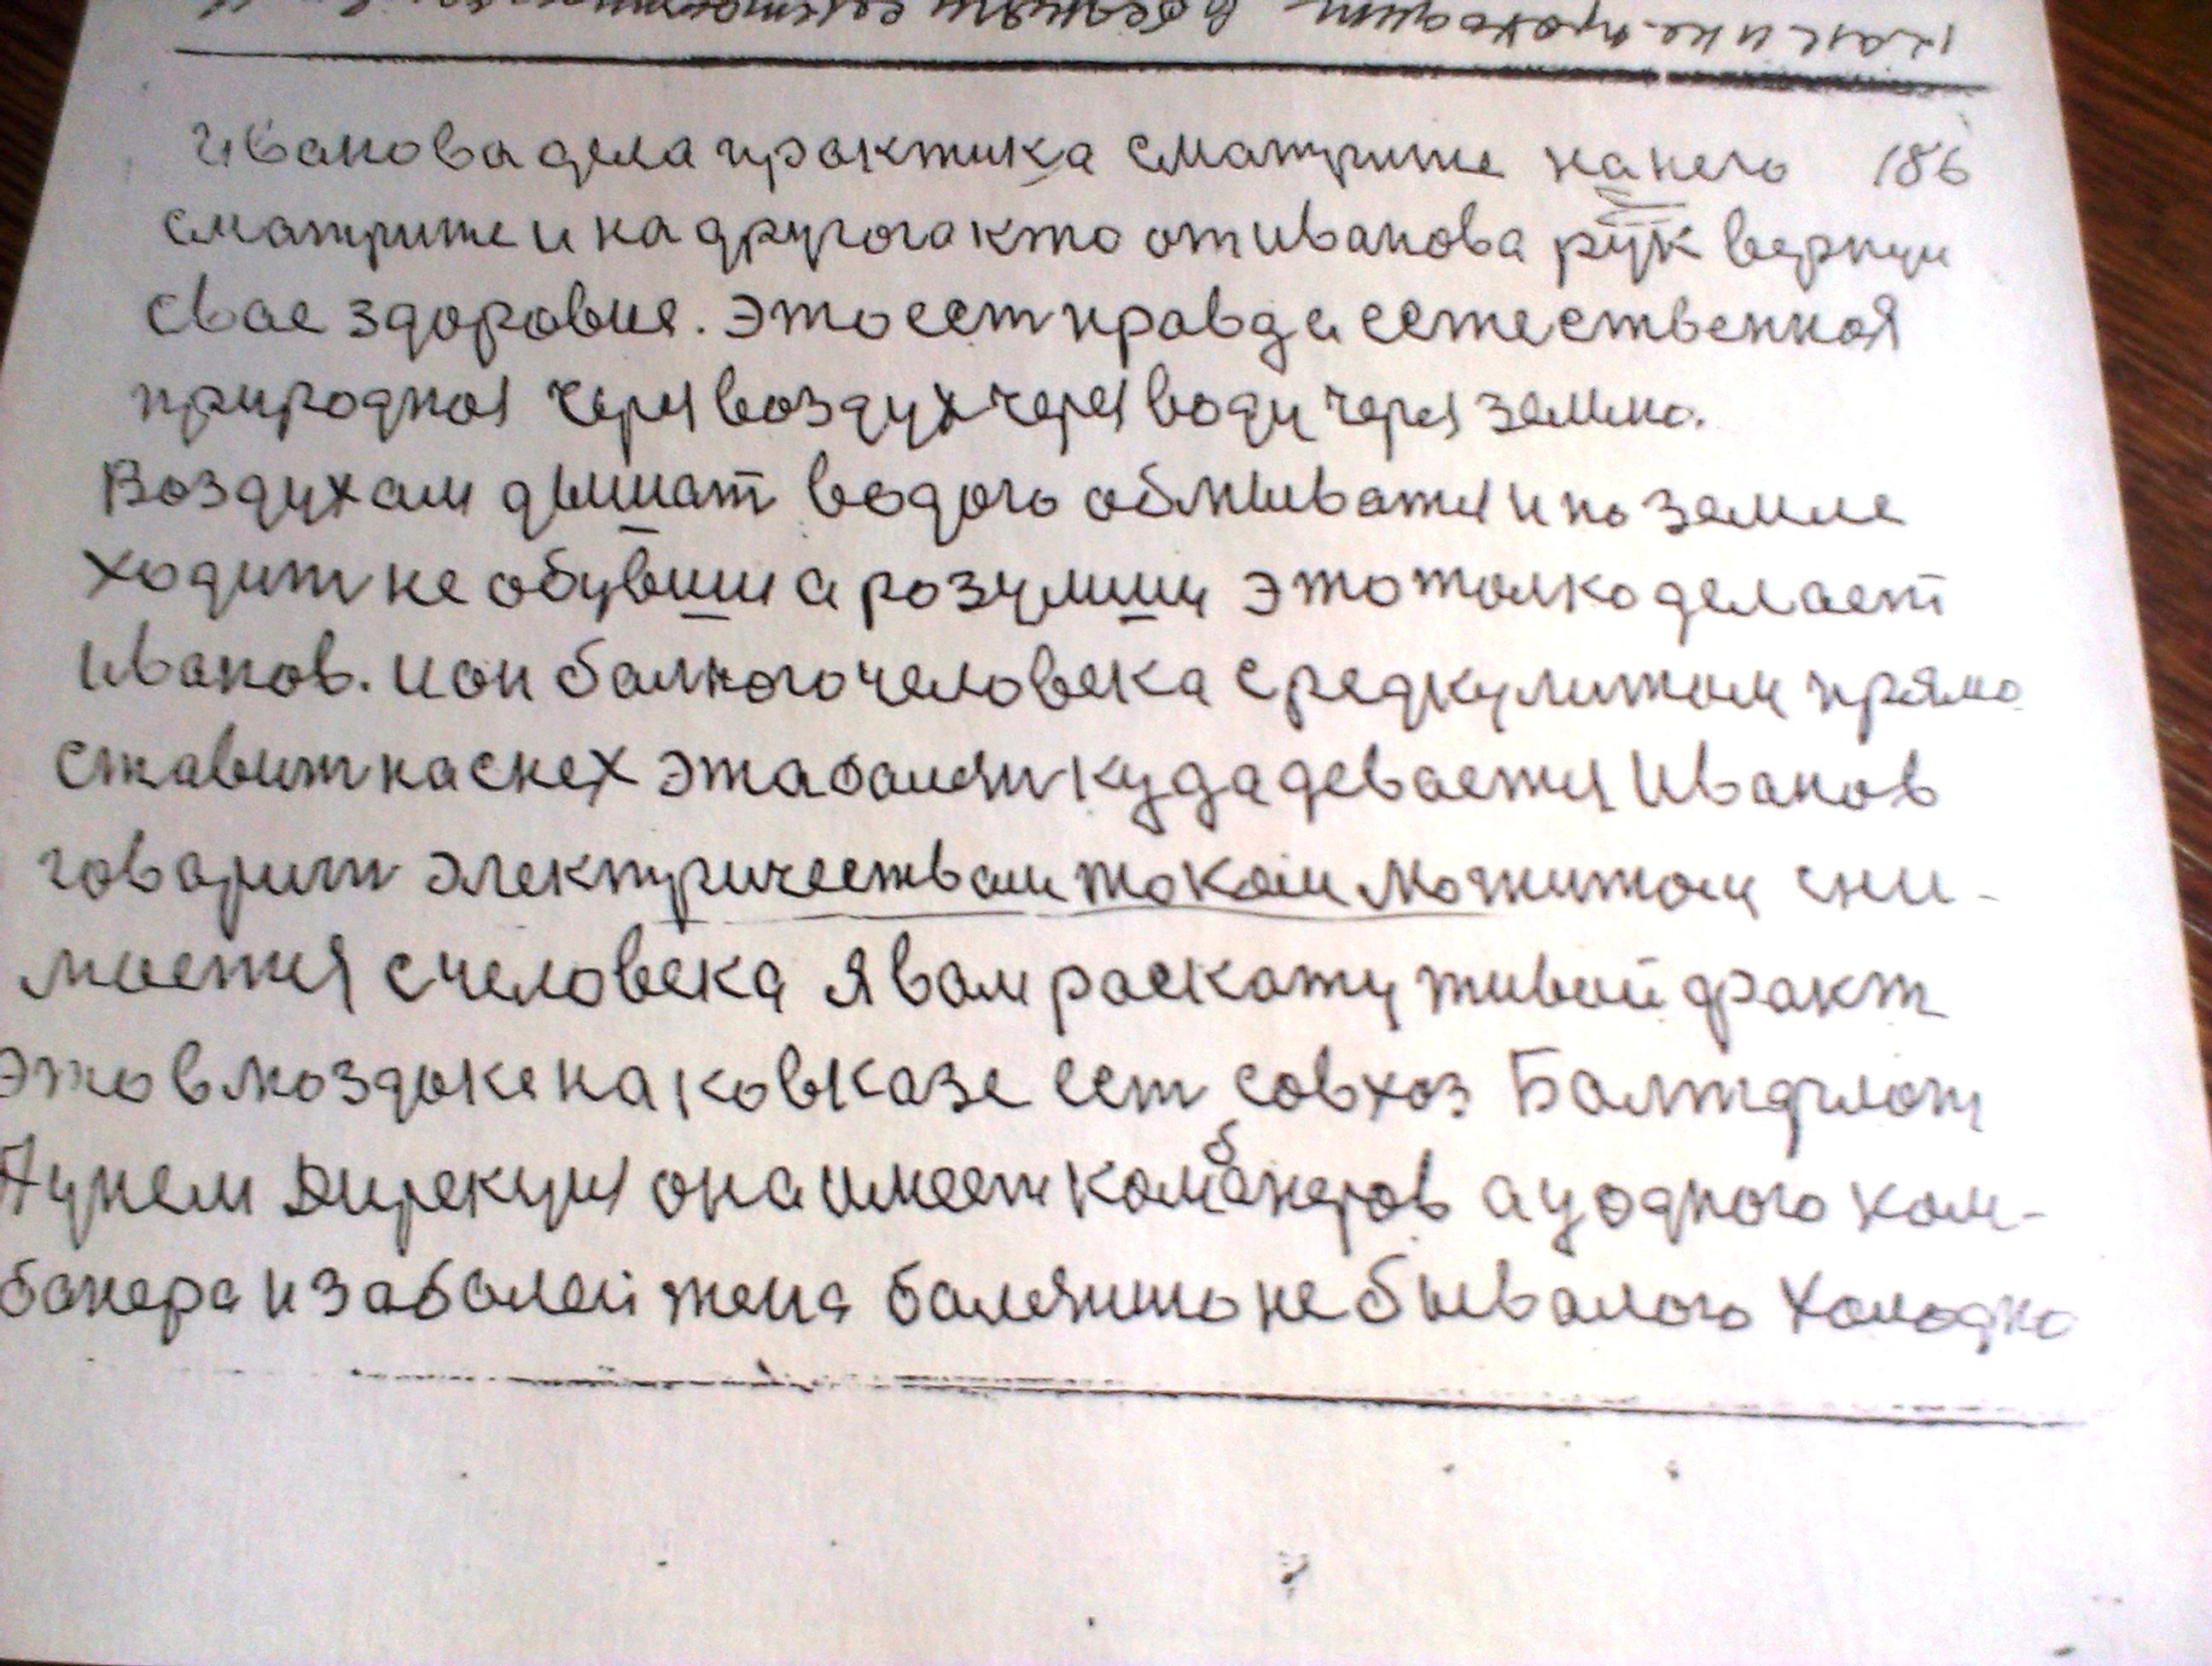 Иванова дела практика сматрите нанего 186
сматрите и на другога кто от иванова рук вернул
свае здоровия. Это ест правда естественная
природная через воздух через воду через землю.
Воздухам дышат водою обмыватся и по земле
ходит не обувшиа розумшы это толко делает
Иванов. и он балного человека средкулитом прямо
ставит на снех эта балезн куда деваетця Иванов
говарит электричествам токамможнитом сни-
маетця с человека Я вам раскажу живой факт
это в моздоке на ковказе ест совхоз Балтфлот
дирекция она имеет камбанеров а у одного ком-
банера и заболей жена балезнию не бывалого холодно